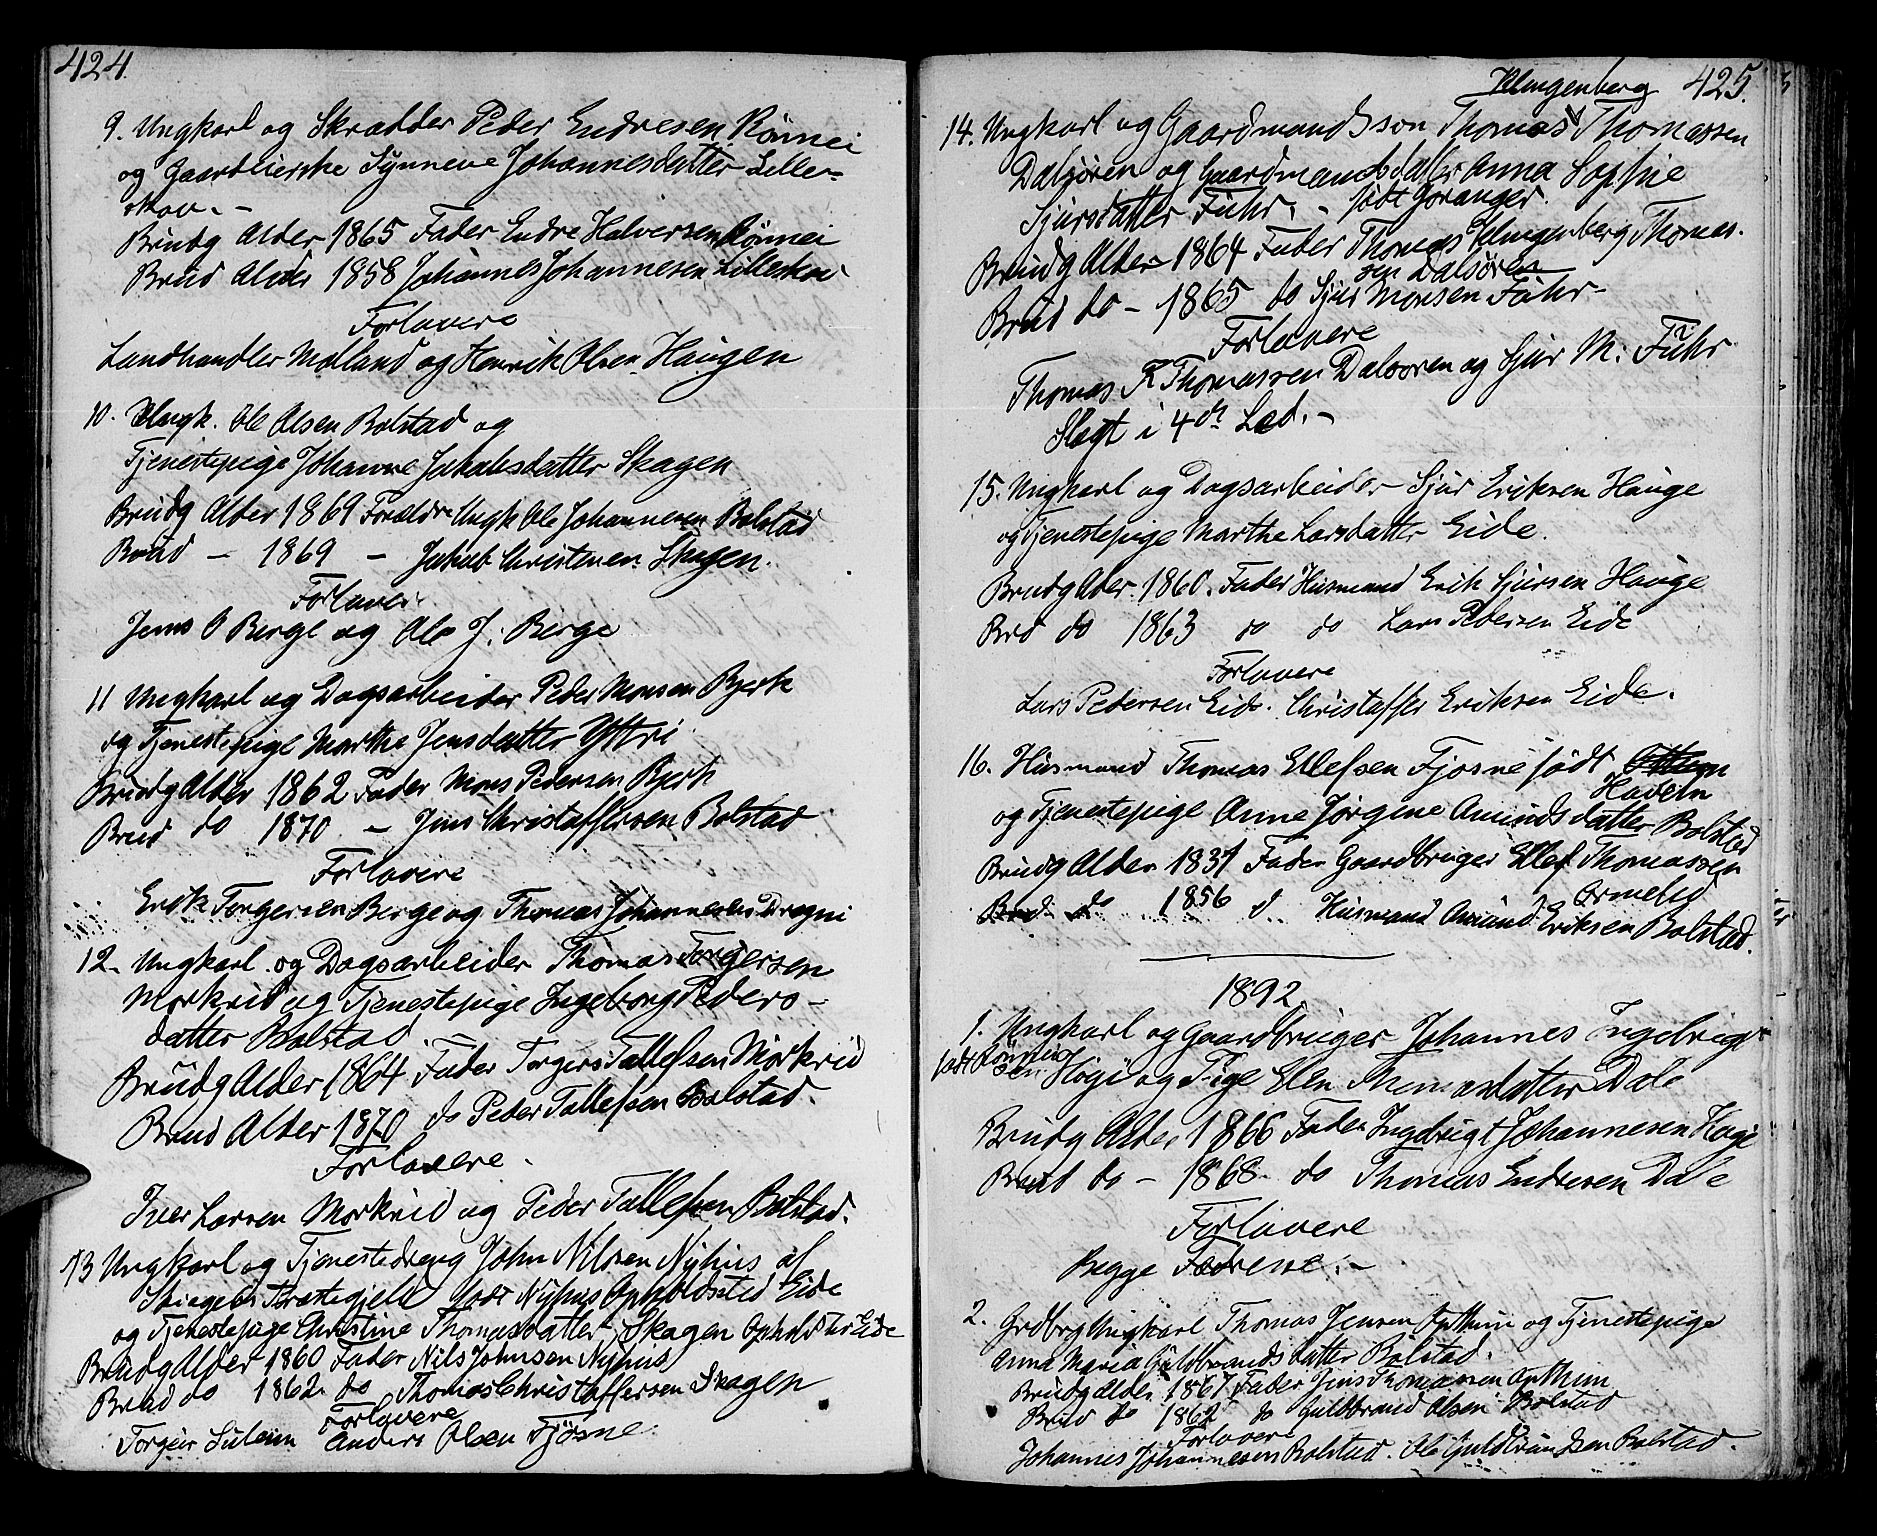 424
9. Ungkarl og Skrædder Peder Endresen Rønnei
og Gaardbierske Synneve Johannesdatter Lille-
skov. -
Brudg Alder 1865 Fader Endre Halversen Rønnei
Brud Alder 1858 Johannes Johannesen Lilleskov
Forlovere
Landhandler Molland og Henrik Olsen Haugen
10. Ungk. Ole Olsen Bolstad og
Tjenestepige Johanne Jakobsdatter Skagen
Brudg Alder 1869 Forældre Ungk Ole Johannesen Bolstad
Brud - 1869 - Jakob Christensen Skagen.
Forlovere
Jens O Berge og Ole J. Berge
11 Ungkarl og Dagsarbeider Peder Monsen Bjerk
og Tjenestepige Marthe Jensdatter Yttri
Brudg Alder 1862 Fader Mons Pedersen Bjerk
Brud do 1870 - Jens Christoffersen Bolstad
Forlovere
Erik Torgersen Berge og Thomas Johannesen Drægni
12. Ungkarl og Dagsarbeider Thomas Torgersen
Morkrid og Tjenestepige Ingeborg Peders-
datter Bolstad.
Brudg Alder 1864 Fader Torgers Tollefsen Morkrid
Brud Alder 1870 do Peder Tollefsen Bolstad.
Forlovere.
Iver Larsen Morkrid og Peder Tollefsen Bolstad.
13 Ungkarl og Tjenestedreng John Nilsen Nyhus af
Præstegjeld født Nyhus Opholdsted Eide
og Tjenestepige Christine Thomasdatter Skagen Opholdsted Eide
Brudg Alder 1860 Fader Nils Johnsen Nyhus
Brud do 1862 do Thomas Christoffersen Skagen
Forlovere
Torgeir Suleim Anders Olsen Fjøsne.
Klingenberg 425.
14. Ungkarl og Gaardmandsson Thomas Thomassen
Dalsøren og Gaardmandsdatter Anna Sophie
Sjursdatter Fuhr. - født Joranger.
Brudg Alder 1864 Fader Thomas Klingenberg Thomas-
sen Dalsøren
Brud do - 1865 do Sjur Monsen Fuhr-
Forlovere
Thomas K Thomassen Dalsøren og Sjur M. Fuhr
Slægt i 4de Led. -
15. Ungkarl og Dagsarbeider Sjur Eriksen Hauge
og Tjenestepige Marthe Larsdatter Eide.
Brudg Alder 1860. Fader Husmand Erik Sjursen Hauge
Brd do 1863 do do Lars Pedersen Eide
Forlovere
Lars Pedersen Eide. Christoffer Eriksen Eide.
16. Husmand Thomas Ellefsen Fjøsne født
Haveln
og Tjenestepige Anne Jørgine Amundsdatter Bolstad
Brudg Alder 1831 Fader Gaardbruger Ellef Thomassen
Ormelid
Brud do 1856 d Husmand Amund Eriksen Bolstad.
1892
1. Ungkarl og Gaardbruger Johannes Ingebrigt-
født Rønnei
sen Høgi og Pige Elen Thomasdatter Dale
Brudg Alder 1866 Fader Ingebrigt Johannesen Høgi
Brud do - 1868 do Thomas Endresen Dale
Forlovere
Begge Fædrene. -
2. Grdbrg Ungkarl Thomas Jensen Opthun og Tjenestepige
Anna Maria Guldbrandsdatter Bolstad.
Brudg Alder 1867 Fader Jens Thomassen Opthun
Brud do 1862 do Guldbrand Olsen Bolstad
Forlovere
Johannes Johannesen Bolstad. Ole Guldbrandsen Bolstad.